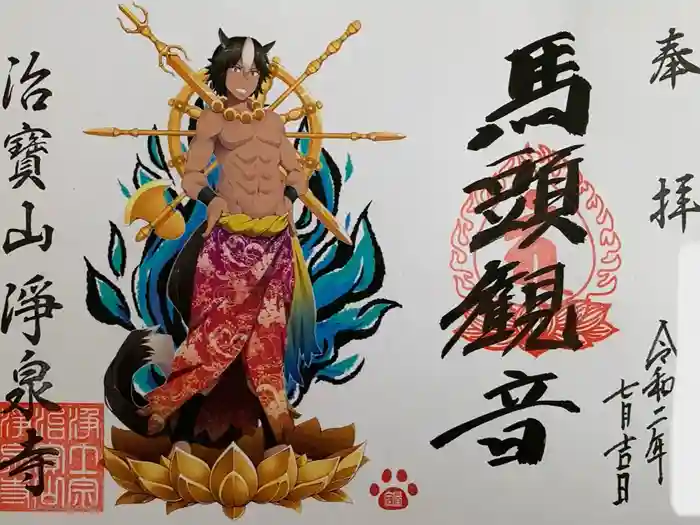 奉拝
令和二年
七月吉日
馬頭観音
治寶山淨泉寺